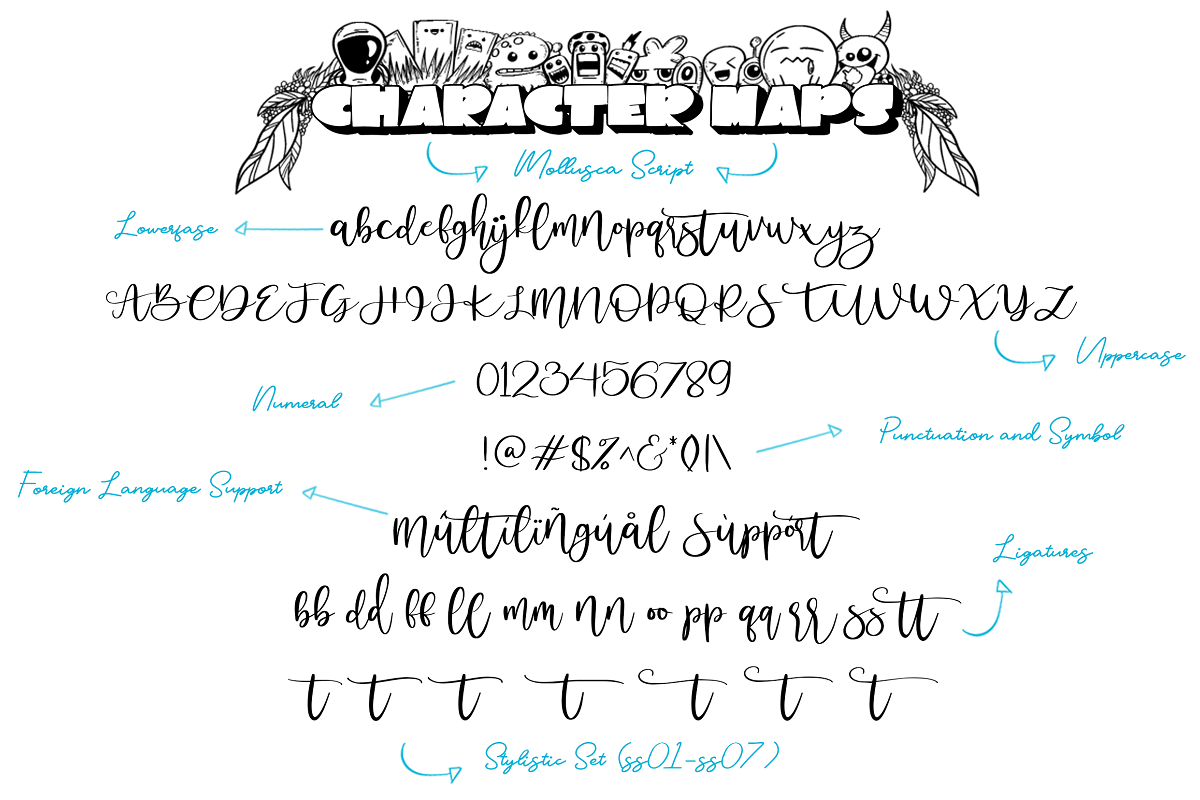 CHARACTER MAPS
Mollusca Script
Lowerfase
abcdefghijklmnopqrstuvwxyz
ABCDEFGHIJKLMNOPQRSTUVWXYZ
Uppercase
0123456789
Numeral
Punctuation and Symbol
!@#$%^&*()|\
Foreign Language Support
Múltílïñgúål Sùppórt
Ligatures
bb dd ff ll mm nn oo pp qq rr ss tt
t t t t t t t
Stylistic Set (ss01-ss07)